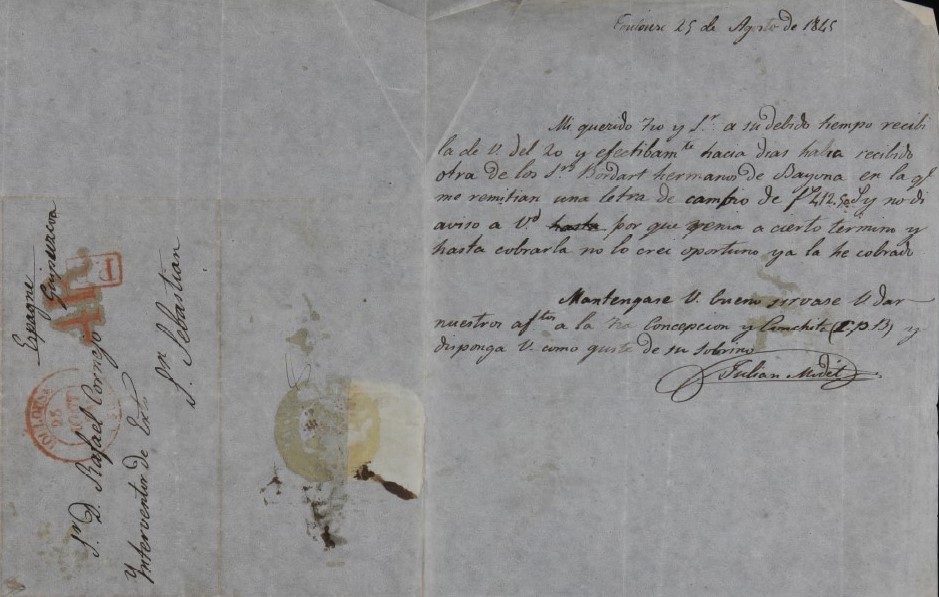 Toulouse 25 de Agosto de 1845
Mi querido Tio y Sr. a su debido tiempo recibi
la de V. del 20 y efectibamte hacia dias habia recibido
otra de los Srs Bordart hermanos de Bayona en la qe
me remitian una letra de cambio de 412.50 y no di
aviso a Vd hasta por que venia a cierto termino y
hasta cobrarla no lo crei oportuno ya la he cobrado
Mantengase V. bueno sirvase V. dar
nuestros aftos a la Tia Concepcion y Conchita (C.P.B) y
disponga V. como guste de su sobrino
Julian
Espagne
Guipuzcoa
AR
1
TOULOUSE
25
AOUT
Sr. D. Rafael Cornejo
Interventor de
Sn Sebastian